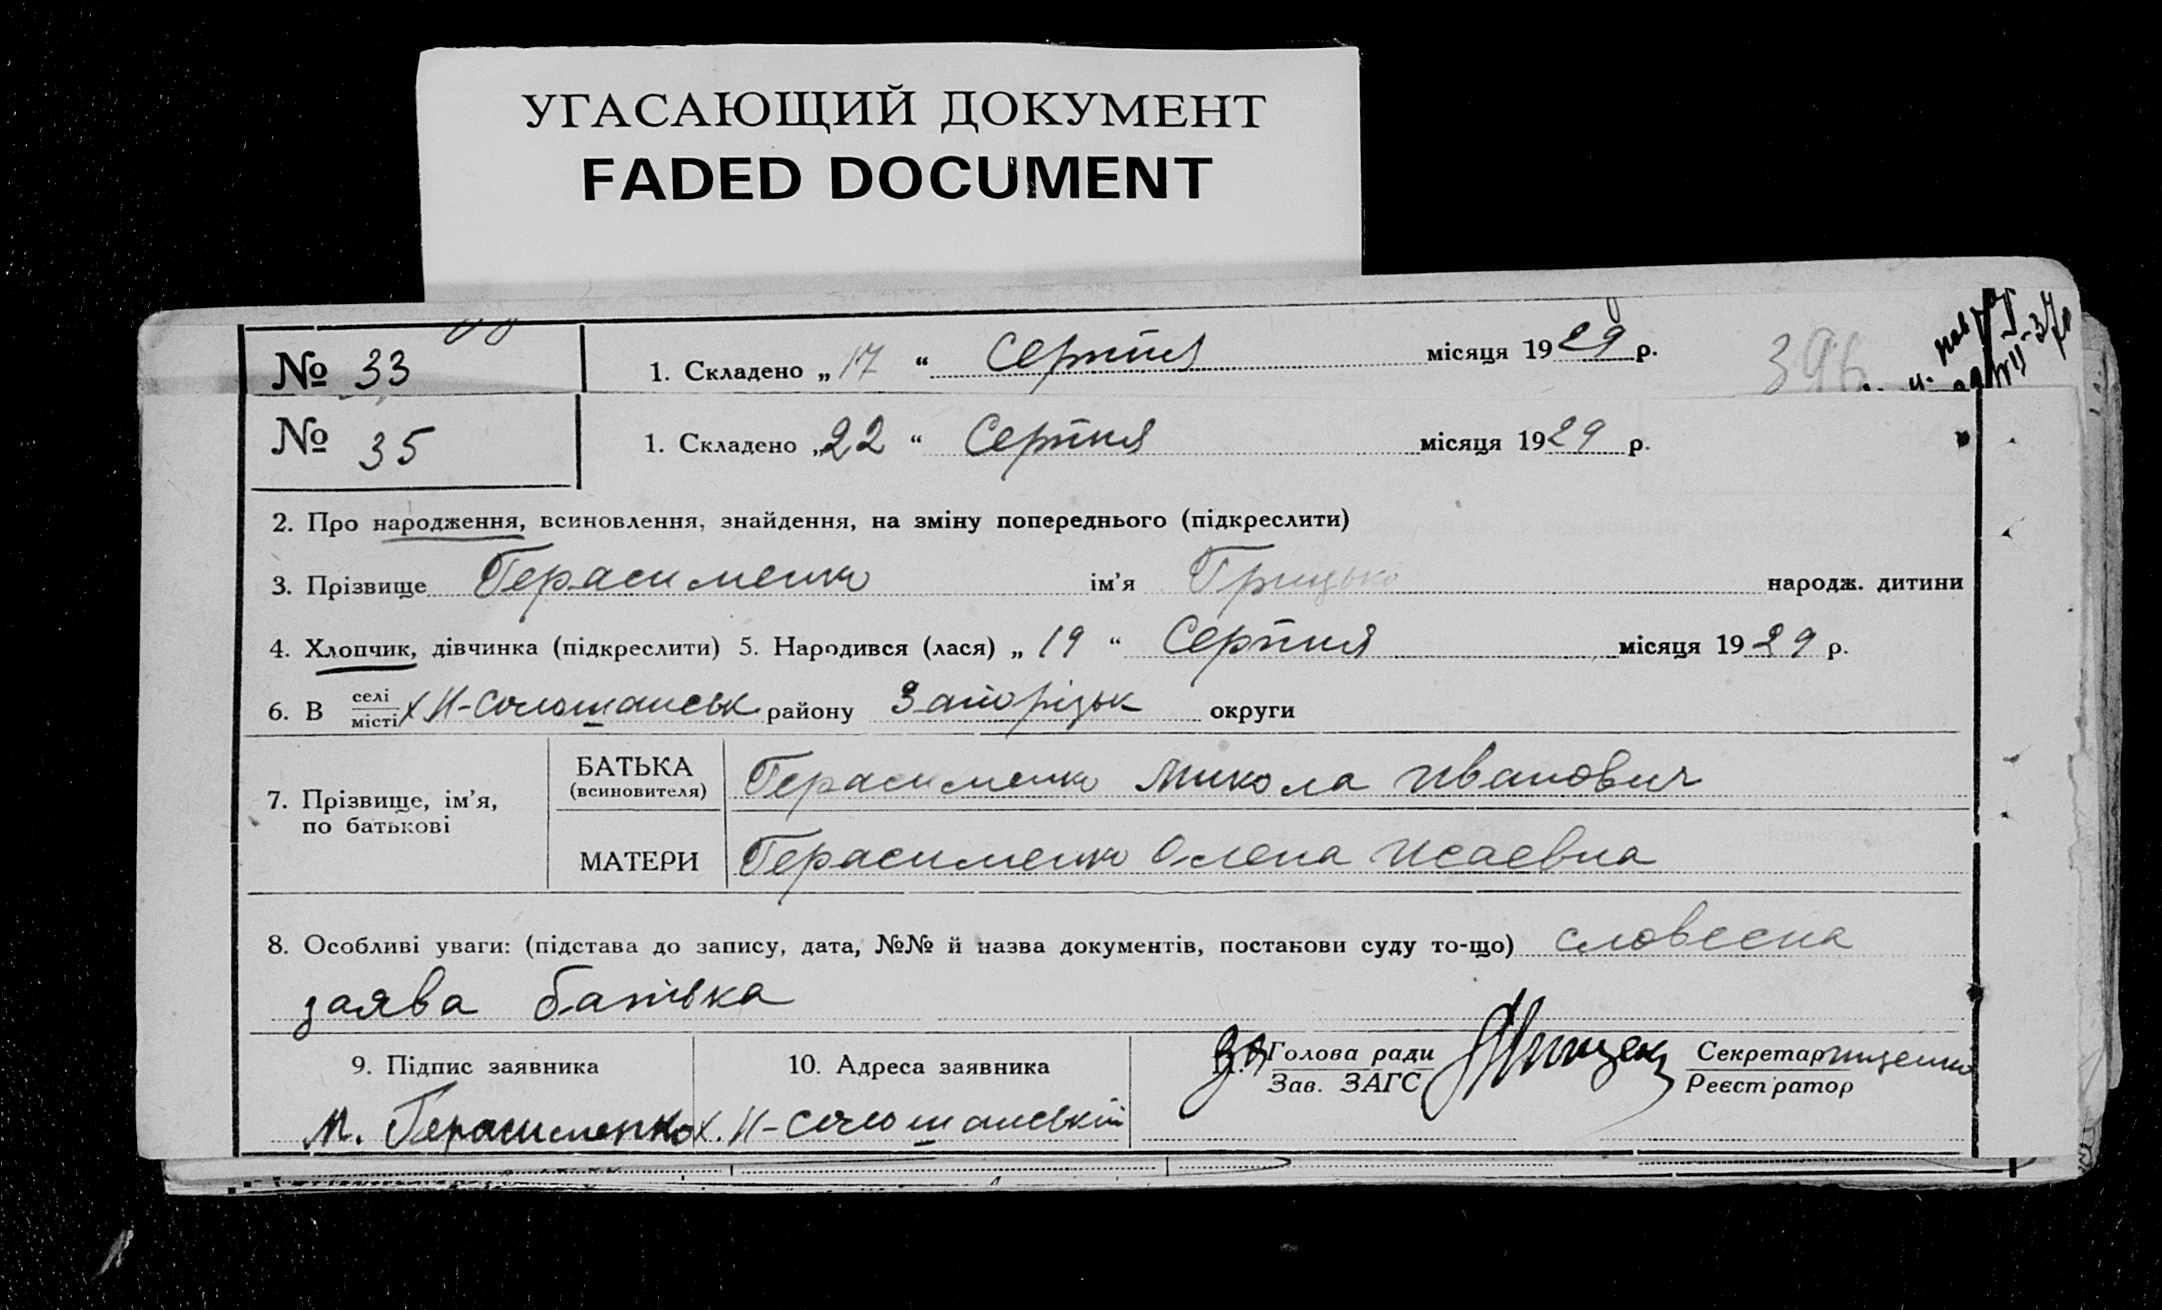 УГАСАЮЩИЙ ДОКУМЕНТ
FADED DOCUMENT
№ 33 1. Складено „17“ Серпня місяця 1929 р.
№ 35 1. Складено „22“ Серпня місяця 1929 р.
2. Про народження, всиновлення, знайдення, на зміну попереднього (підкреслити)
3. Прізвище Герасименко ім’я Грицько народж. дитини
4. Хлопчик, дівчинка (підкреслити) 5. Народився (лася) „19“ Серпня місяця 1929 р.
6. В селі місті х Н-Солошанськ району Запорізьк округи
7. Прізвище, ім’я, по батькові
БАТЬКА (всиновителя) Герасименко Микола Иванович
МАТЕРИ Герасименко Олена Исаевна
8. Особливі уваги: (підстава до запису, дата, №№ й назва документів, постанови суду то-що) словесна
заява батька
9. Підпис заявника 10. Адреса заявника За Голова ради Секретар
Зав. ЗАГС Реєстратор
М. Герасименко х. Н-Солошанський